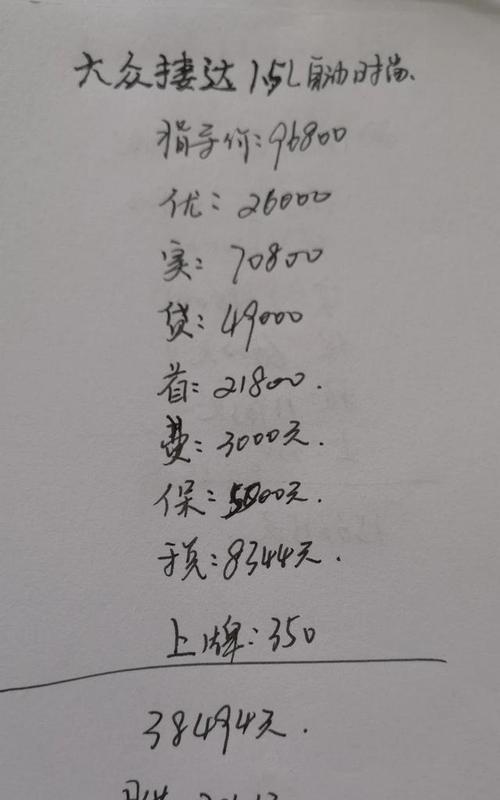 大众捷达 1.5L 自动时尚.
指导价:96800
优:26000
实:70800
贷:49000
首:21800.
费:3000元.
保:5000元.
税:8344元.
上牌:350
38494元.